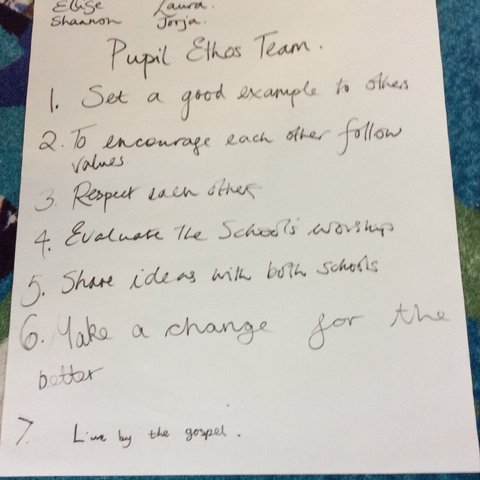 Ellise Laura.
Shannon Jorja.
Pupil Ethos Team.
1. Set a good example to others
2. To encourage each other follow
values
3. Respect each other
4. Evaluate the School's worship
5. Share ideas with both schools
6. Make a change for the
better
7. Live by the gospel.